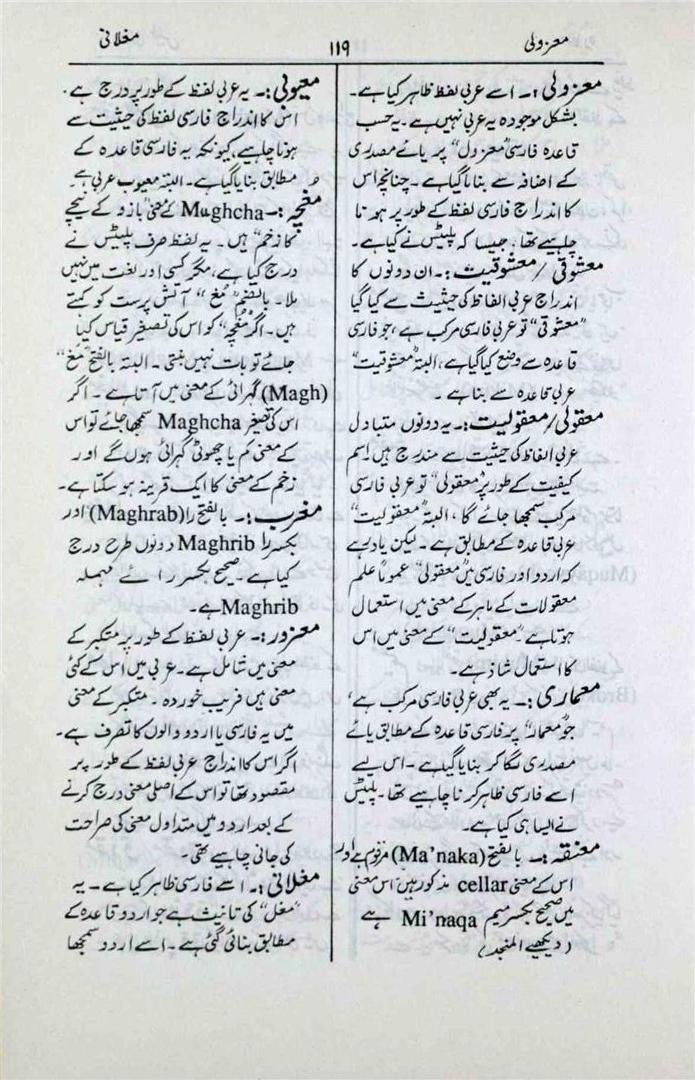 معزولی
۱۱۹
مغلانی
معزولی :۔ اسے عربی لفظ ظاہر کیا ہے۔
بشکل موجودہ یہ عربی نہیں ہے۔ یہ حسب
قاعدہ فارسی "معزول" پر یائے مصدری
کے اضافہ سے بنایا گیا ہے۔ چنانچہ اس
کا اندراج فارسی لفظ کے طور پر ہونا
چاہیے تھا، جیسا کہ پلیٹس نے کیا ہے۔
معشوقی / معشوقیت :۔ ان دونوں کا
اندراج عربی الفاظ کی حیثیت سے کیا گیا
"معشوقی" تو عربی فارسی مرکب ہے، جو فارسی
قاعدہ سے وضع کیا گیا ہے، البتہ "معشوقیت"
عربی قاعدہ سے بنا ہے۔
معقولی/ معقولیت :۔ یہ دونوں متبادل
عربی الفاظ کی حیثیت سے مندرج ہیں! اسم
کیفیت کے طور پر "معقولی" تو عربی فارسی
مرکب سمجھا جائے گا، البتہ "معقولیت"
عربی قاعدہ کے مطابق ہے۔ لیکن یاد رہے
کہ اردو اور فارسی میں "معقولی" عموماً علم
معقولات کے ماہر کے معنی میں استعمال
ہوتا ہے "معقولیت" کے معنی میں اس
کا استعمال شاذ ہے۔
معماری :۔ یہ بھی عربی فارسی مرکب ہے،
جو "معمار" پر فارسی قاعدہ کے مطابق یائے
مصدری لگا کر بنایا گیا ہے۔ اس لیے
اسے فارسی ظاہر کرنا چاہیے تھا۔ پلیٹس
نے ایسا ہی کیا ہے۔
معنقہ :۔ بالفتح (Ma'naka) مرقوم ہے اور
اس کے معنی cellar مذکور ہیں اس معنی
میں صحیح بکسر میم Mi'naqa ہے
(دیکھیے المنجد)
معیوبی :۔ یہ عربی لفظ کے طور پر درج ہے۔
اس کا اندراج فارسی لفظ کی حیثیت سے
ہونا چاہیے، کیونکہ یہ فارسی قاعدہ کے
مطابق بنایا گیا ہے۔ البتہ معیوب عربی ہے۔
مغچہ :۔ Mughcha کے معنی "بازو کے نیچے
کا زخم" ہیں۔ یہ لفظ صرف پلیٹس نے
درج کیا ہے، مگر کسی اور لغت میں نہیں
ملا۔ بالضم "مُغ" آتش پرست کو کہتے
ہیں۔ اگر "مغچہ" کو اس کی تصغیر قیاس کیا
جائے تو بات نہیں بنتی۔ البتہ بالفتح "مَغ"
(Magh) گہرائی کے معنی میں آتا ہے۔ اگر
اس کی تصغیر Maghcha سمجھا جائے تو اس
کے معنی کم یا چھوٹی گہرائی ہوں گے اور
زخم کے معنی کا ایک قرینہ ہو سکتا ہے۔
مغرب :۔ بالفتح را (Maghrab) اور
بکسر را Maghrib دونوں طرح درج
کیا ہے۔ صحیح بکسر رائے مہملہ
Maghrib ہے۔
مغرور :۔ عربی لفظ کے طور پر متکبر کے
معنی میں شامل ہے۔ عربی میں اس کے کئی
معنی ہیں فریب خوردہ۔ متکبر کے معنی
میں یہ فارسی یا اردو والوں کا تصرف ہے۔
اگر اس کا اندراج عربی لفظ کے طور پر
مقصود تھا تو اس کے اصلی معنی درج کرنے
کے بعد اردو میں متداول معنی کی صراحت
کی جانی چاہیے تھی۔
مغلانی :۔ اسے فارسی ظاہر کیا ہے۔ یہ
"مغل" کی تانیث ہے جو اردو قاعدہ کے
مطابق بنائی گئی ہے۔ اسے اردو سمجھا